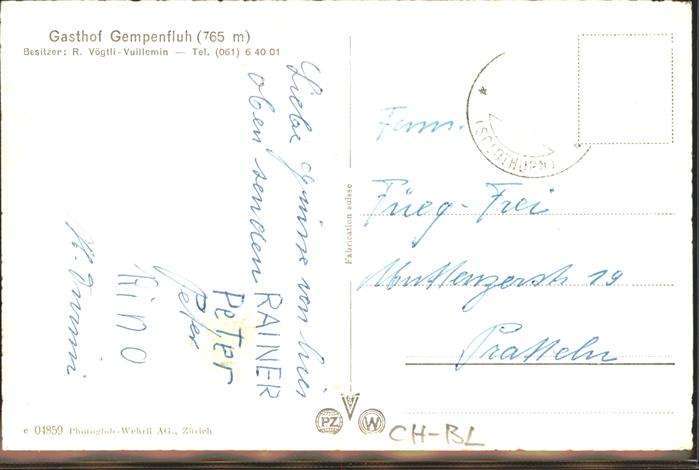 Gasthof Gempenfluh (765 m)
Besitzer: R. Vögtli-Vuillemin — Tel. (061) 6 40 01
Liebe Grüsse von hier
oben senden RAINER
PETER
Peter
TiNO
Fam.
Füeg-Frei
Muttenzerstr 19
Pratteln
Fabrication suisse
e 04859 Photoglob-Wehrli AG., Zürich
PZ W
CH-BL